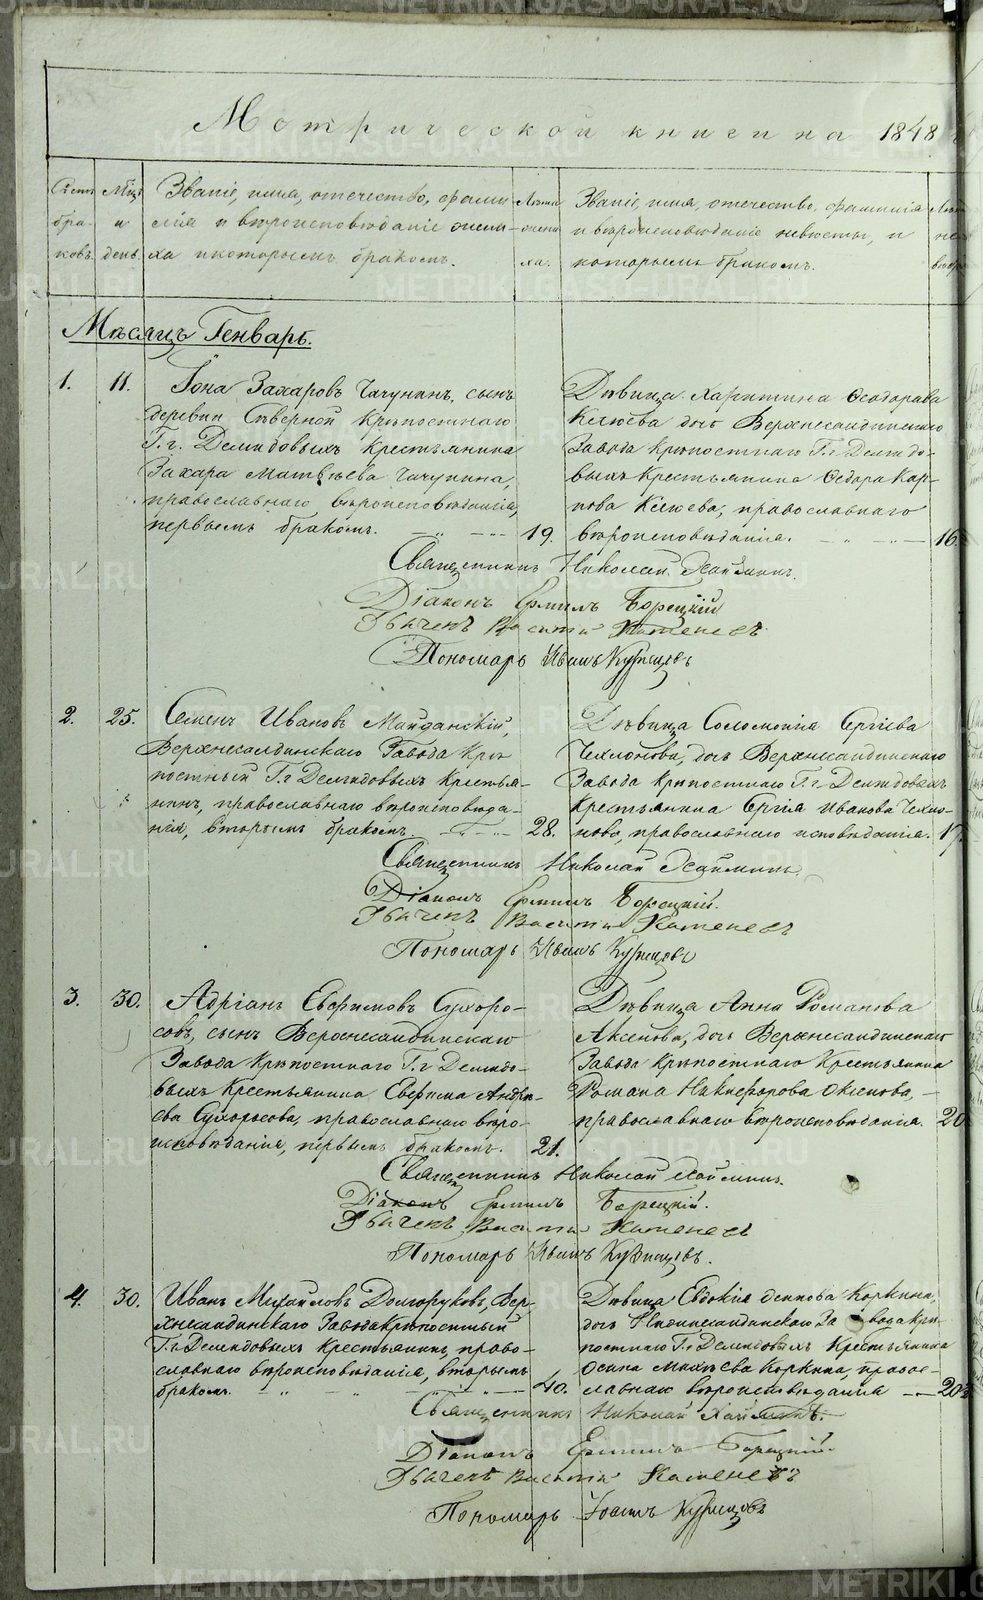 Метрической книги на 1848
Счетъ
бра-
ковъ.
Мѣц.
и
день.
Званіе, имя, отечество, фами-
лія и вѣроисповѣданіе жени-
ха и которымъ бракомъ.
Лѣта
жени-
ха.
Званіе, имя, отечество, фамилія
и вѣроисповѣданіе невѣсты, и
которымъ бракомъ.
Мѣсяцъ Генварь.
1. 11.
Іона Захаровъ Чачунинъ, сынъ
деревни Сѣверной Крѣпостнаго
Г.г. Демидовыхъ Крестьянина
Захара Матвѣева Чачунина,
православнаго вѣроисповѣданія,
первымъ бракомъ. 19.
Дѣвица Харитина Ѳеодорова
Клюева дочь Верхнесалдинскаго
Завода Крѣпостнаго Г.г. Демидо-
выхъ Крестьянина Ѳедора Кар-
пова Клюева, православнаго
вѣроисповѣданія. 16.
Священникъ Николай Хаймин.
Діаконъ Ермилъ Борецкій
Дьячекъ Василій Каменевъ
Пономарь Иванъ Кузнецовъ
2. 25.
Семенъ Ивановъ Майданскій,
Верхнесалдинскаго Завода Крѣ
постный Г.г Демидовыхъ Крестья-
нинъ, православнаго вѣроисповѣда-
нія, вторымъ бракомъ. 28.
Дѣвица Соломонія Сергіева
Чехлонова, дочь Верхнесалдинскаго
Завода Крѣпостнаго Г.г Демидовыхъ
Крестьянина Сергія Иванова Чехло-
нова, православнаго исповѣданія. 17.
Священникъ Николай Хайминъ.
Діаконъ Ермилъ Борецкій.
Дьячекъ Василій Каменевъ
Пономарь Иванъ Кузнецовъ
3. 30.
Адріанъ Евфимовъ Сухоро-
совъ, сынъ Верхнесалдинскаго
Завода Крѣпостнаго Г.г Демидо-
выхъ Крестьянина Евфима Андре-
ева Сухоросова, православнаго вѣро-
исповѣданія, первымъ бракомъ. 21.
Дѣвица Анна Романова
Аксенова, дочь Верхнесалдинскаго
Завода Крѣпостнаго Крестьянина
Романа Никифорова Оксенова,
православнаго вѣроисповѣданія. 20
Священникъ Николай Хайминъ.
Діаконъ Ермилъ Борецкій.
Дьячекъ Василій Каменевъ
Пономарь Иванъ Кузнецовъ.
4. 30.
Иванъ Михайловъ Долгоруковъ, Вер-
хнесалдинскаго Завода Крѣпостный
Г.г Демидовыхъ Крестьянинъ, право-
славнаго вѣроисповѣданія, вторымъ
бракомъ. 40.
Дѣвица Евдокія Осипова Коркина,
дочь Нижнесалдинскаго Завода Крѣ-
постнаго Г.г Демидовыхъ Крестьянина
Осипа Коркина, право-
славнаго вѣроисповѣданія 20
Священникъ Николай Хайминъ.
Діаконъ Ермилъ Борецкій.
Дьячекъ Василій Каменевъ
Пономарь Иоаннъ Кузнецовъ
METRIKI.GASO-URAL.RU